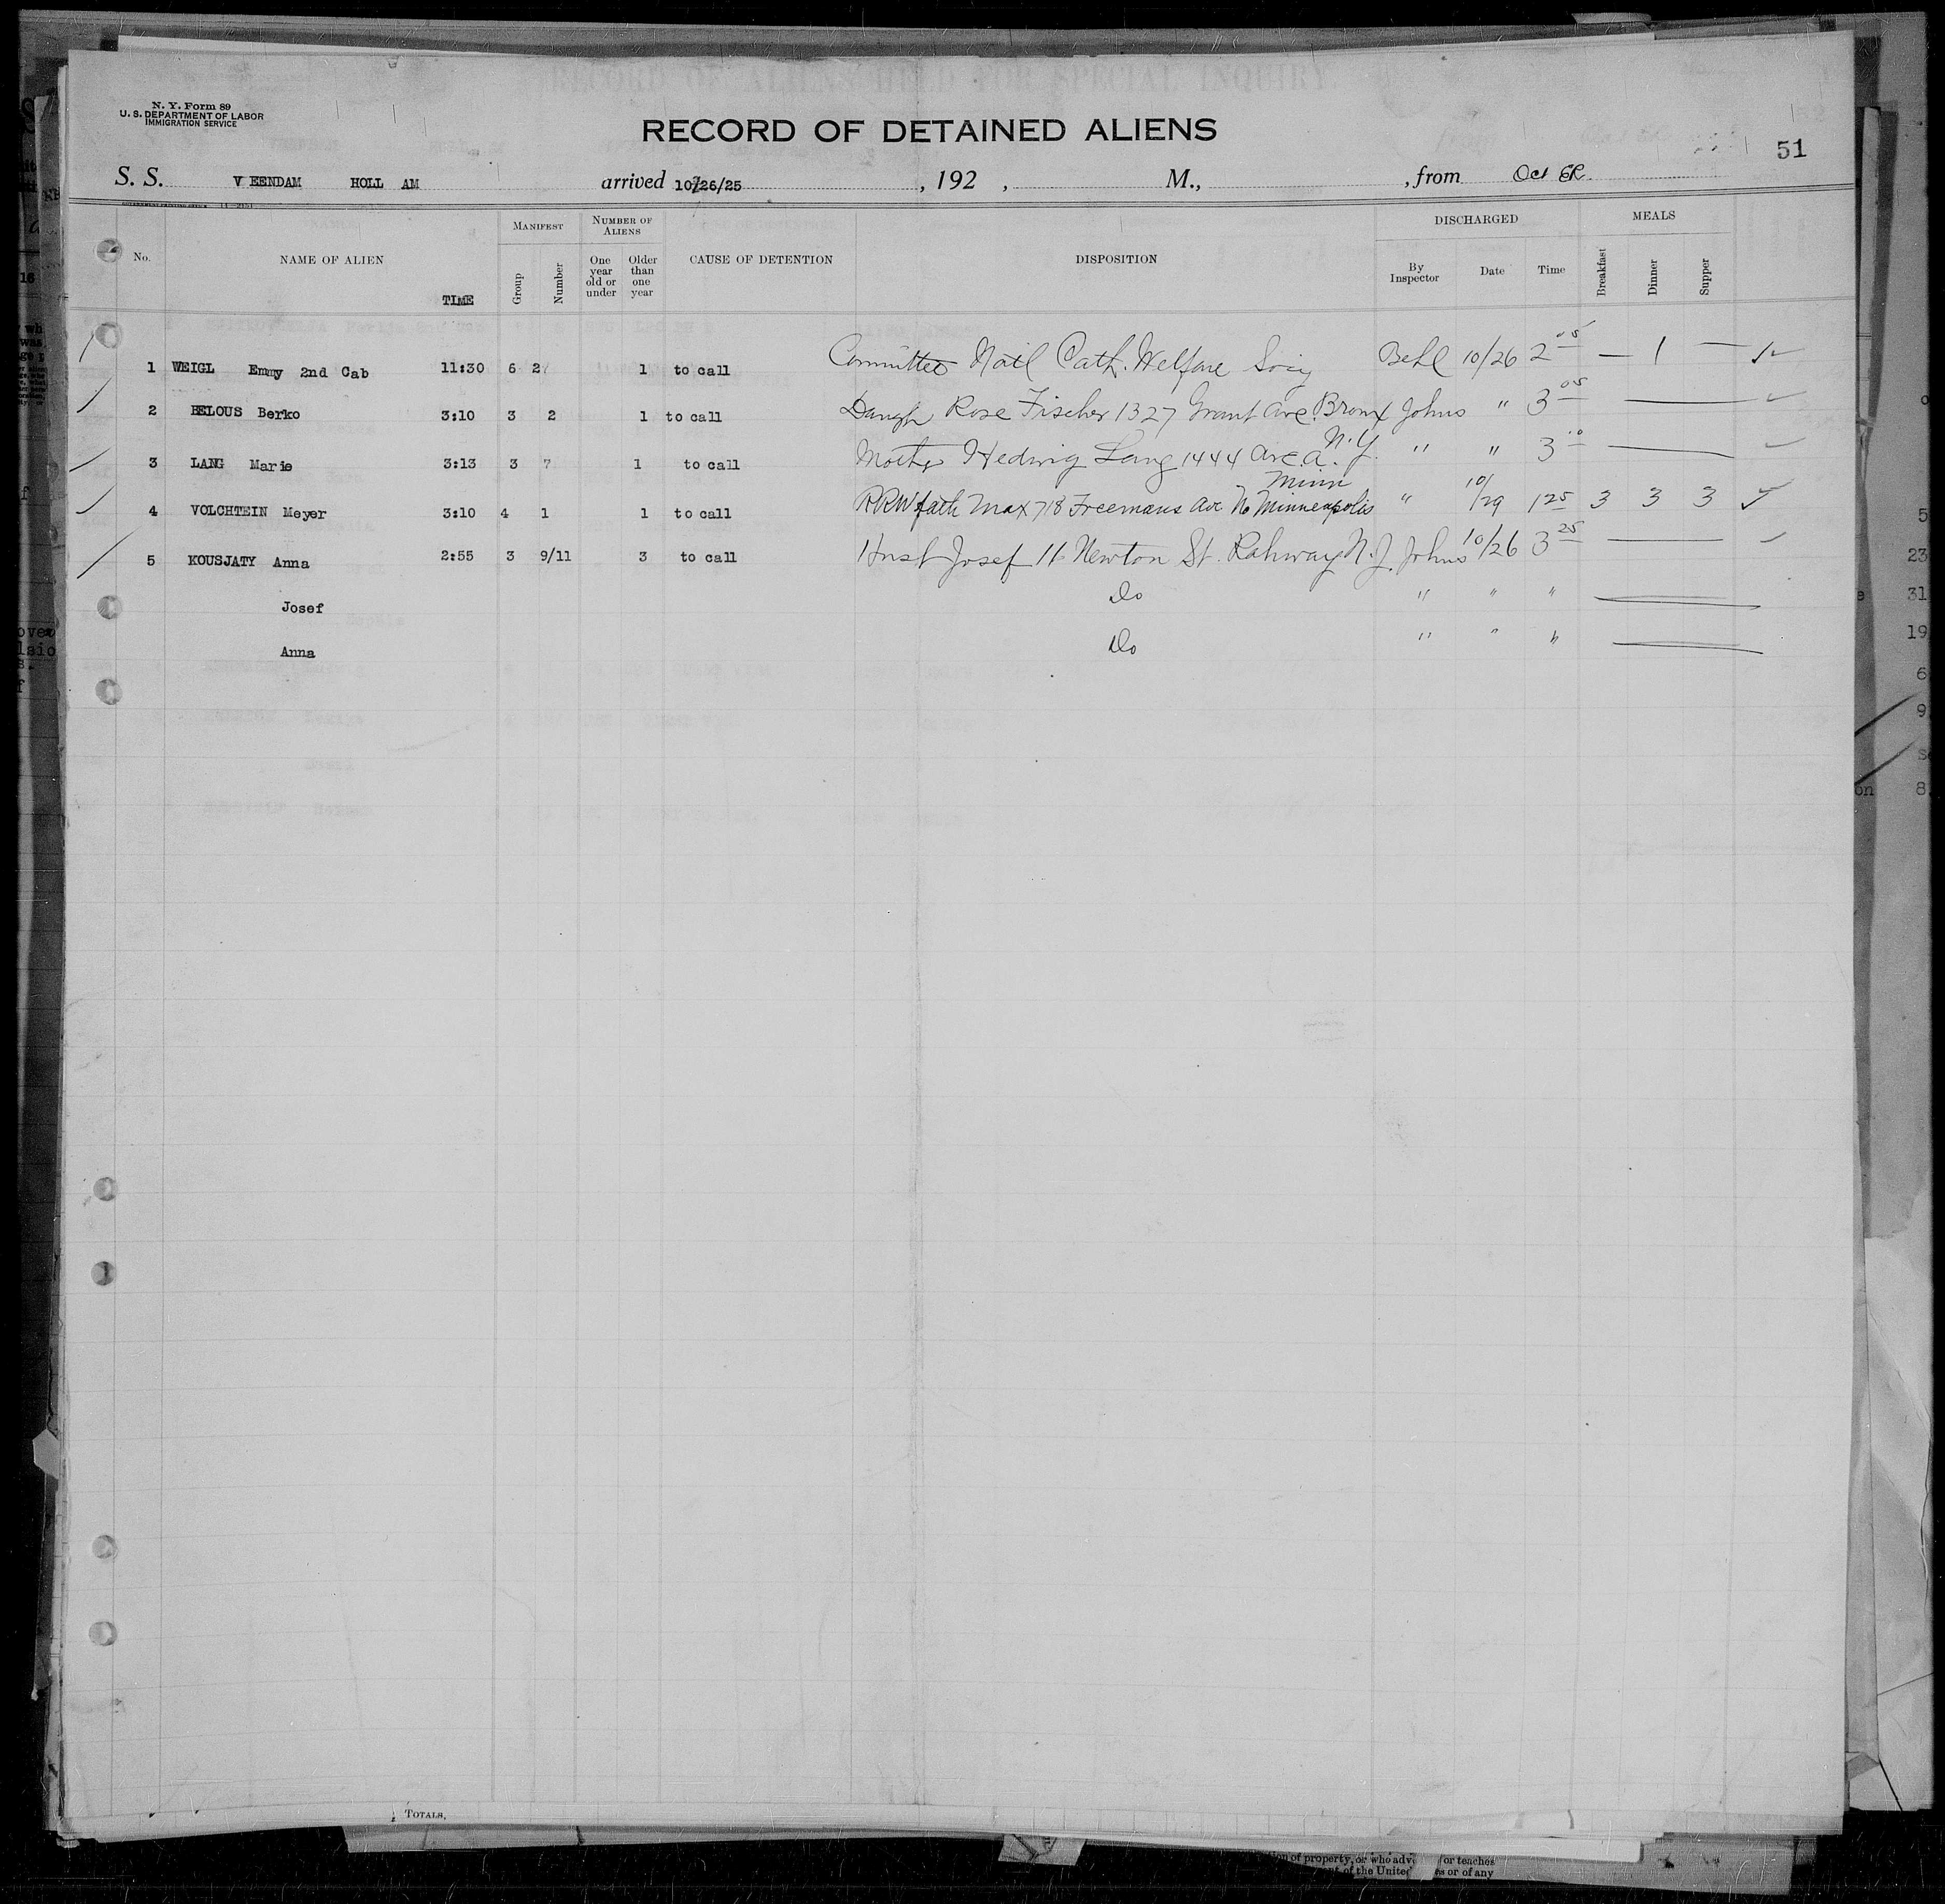 N. Y. Form 89
U. S. DEPARTMENT OF LABOR
IMMIGRATION SERVICE
RECORD OF DETAINED ALIENS
51
S. S. VEENDAM HOLL AM arrived 10/26/25, 192 , M., , from Oct
No. NAME OF ALIEN TIME MANIFEST Group Number NUMBER OF ALIENS One year old or under Older than one year CAUSE OF DETENTION DISPOSITION DISCHARGED By Inspector Date Time MEALS Breakfast Dinner Supper
1 WEIGL Emmy 2nd Cab 11:30 6 2 1 to call Committee Natl Cath. Welfare Behl 10/26 2 05 — 1 —
2 BELOUS Berko 3:10 3 2 1 to call Daugh Rose Fischer 1327 Grant Ave. Bronx Johns " 3 05
3 LANG Marie 3:13 3 7 1 to call Mother Hedwig Lang 1444 Ave. A. N.Y. " " 3 10
4 VOLCHTEIN Meyer 3:10 4 1 1 to call RRW fath Max 718 Freemans Ave No Minneapolis Minn " 10/29 1 25 3 3 3
5 KOUSJATY Anna 2:55 3 9/11 3 to call Husb Josef 16 Newton St. Rahway N.J. Johns 10/26 3 25
Josef Do " " "
Anna Do " " "
TOTALS,